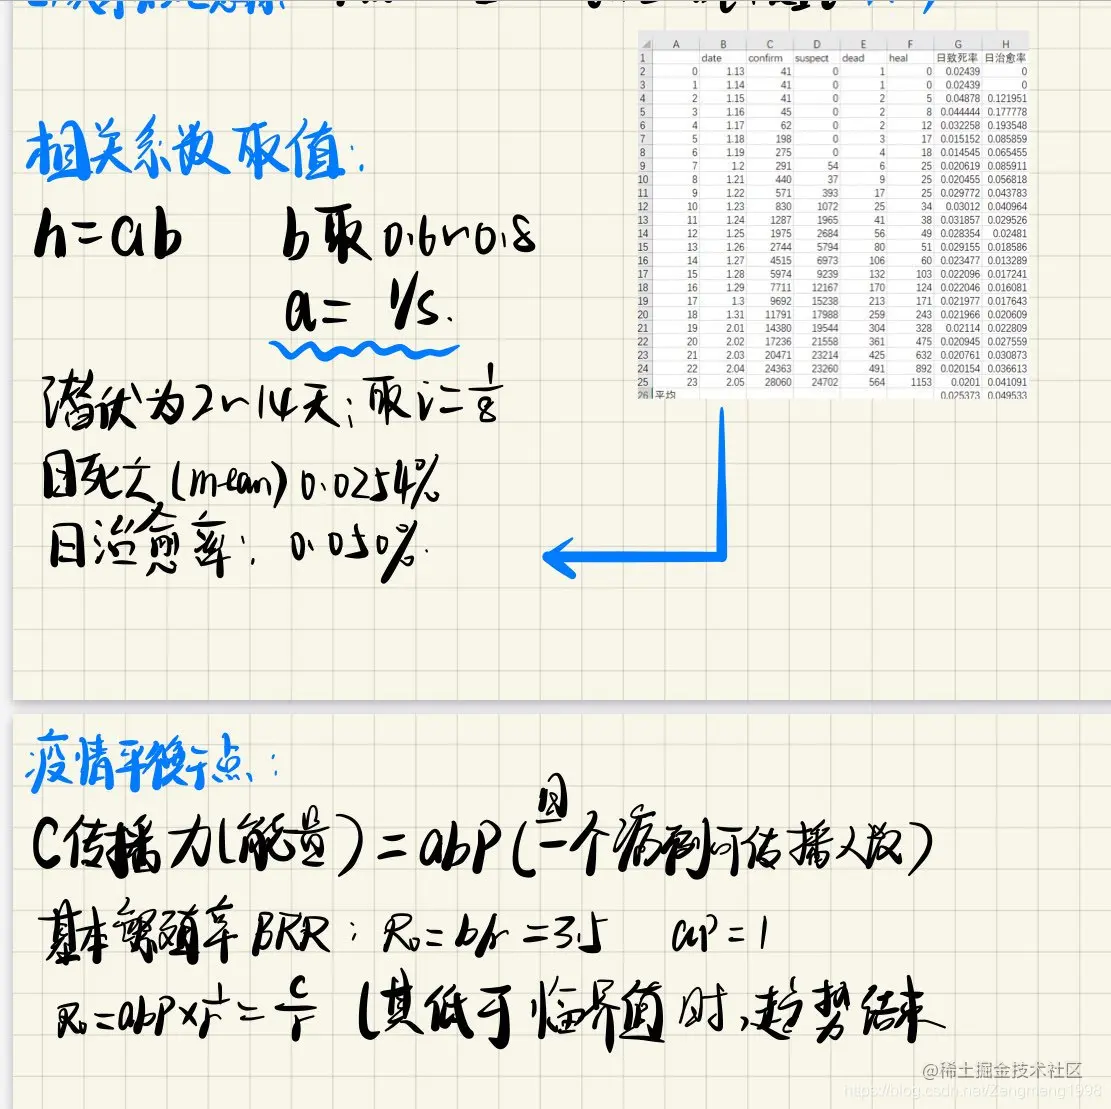 相关系数取值：
h=ab b取0.6~0.8
a= 1/s.
潜伏为2~14天；取i=1/8
日死亡(mean) 0.0254%
日治愈率： 0.050%.
A B C D E F G H
1 date confirm suspect dead heal 日致死率 日治愈率
2 0 1.13 41 0 1 0 0.02439 0
3 1 1.14 41 0 1 0 0.02439 0
4 2 1.15 41 0 2 5 0.04878 0.121951
5 3 1.16 45 0 2 8 0.044444 0.177778
6 4 1.17 62 0 2 12 0.032258 0.193548
7 5 1.18 198 0 3 17 0.015152 0.085859
8 6 1.19 275 0 4 18 0.014545 0.065455
9 7 1.2 291 54 6 25 0.020619 0.085911
10 8 1.21 440 37 9 25 0.020455 0.056818
11 9 1.22 571 393 17 25 0.029772 0.043783
12 10 1.23 830 1072 25 34 0.03012 0.040964
13 11 1.24 1287 1965 41 38 0.031857 0.029526
14 12 1.25 1975 2684 56 49 0.028354 0.02481
15 13 1.26 2744 5794 80 51 0.029155 0.018586
16 14 1.27 4515 6973 106 60 0.023477 0.013289
17 15 1.28 5974 9239 132 103 0.022096 0.017241
18 16 1.29 7711 12167 170 124 0.022046 0.016081
19 17 1.3 9692 15238 213 171 0.021977 0.017643
20 18 1.31 11791 17988 259 243 0.021966 0.020609
21 19 2.01 14380 19544 304 328 0.02114 0.022809
22 20 2.02 17236 21558 361 475 0.020945 0.027559
23 21 2.03 20471 23214 425 632 0.020761 0.030873
24 22 2.04 24363 23260 491 892 0.020154 0.036613
25 23 2.05 28060 24702 564 1153 0.0201 0.041091
26 平均 0.025373 0.049533
疫情平衡点：
C传播力(能量)=abP(一个病例可传播人数)
基本繁殖率BRR：R₀=b/r=3.5 aP=1
R₀=abP×1/r=C/r (其低于临界值时,趋势结束
@稀土掘金技术社区
https://blog.csdn.net/Zengmeng1998